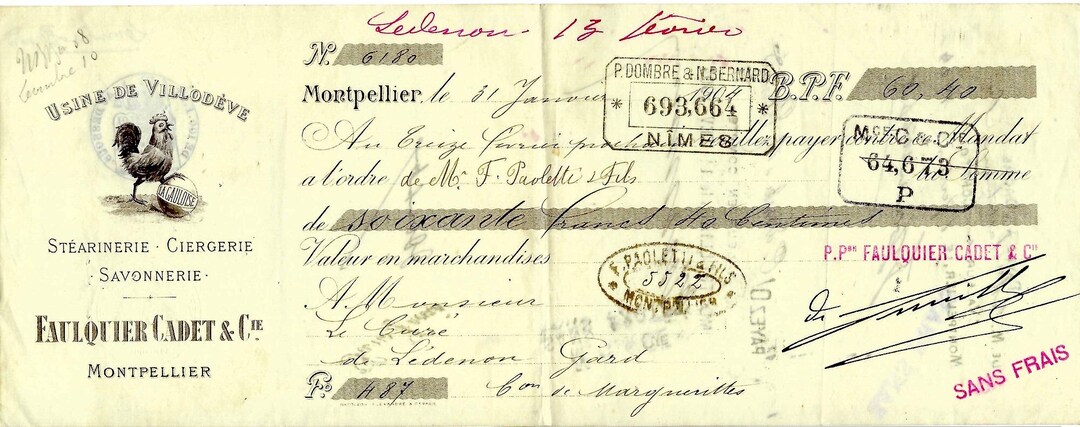 Ledenon 13 février
USINE DE VILLODÈVE
LA GAULOISE
STÉARINERIE · CIERGERIE
· SAVONNERIE ·
FAULQUIER CADET & CIE
MONTPELLIER
No. 6180
Montpellier, le 31 Janvier 1904 B.P.F. 60,40
P. DOMBRE & N. BERNARD
* 693,664 *
NÎMES
Au Treize février prochain veuillez payer contre ce Mandat
Mce C & Cie
64,673
P
a l'ordre de Mr F. Paoletti & Fils la Somme
de soixante francs 40 Centimes
Valeur en marchandises
P. Pon FAULQUIER CADET & Cie
F. PAOLETTI & FILS
5522
* MONTPELLIER *
A Monsieur
Le Curé
de Lédenon Gard
de
SANS FRAIS
Fo 487 Con de Marguerittes